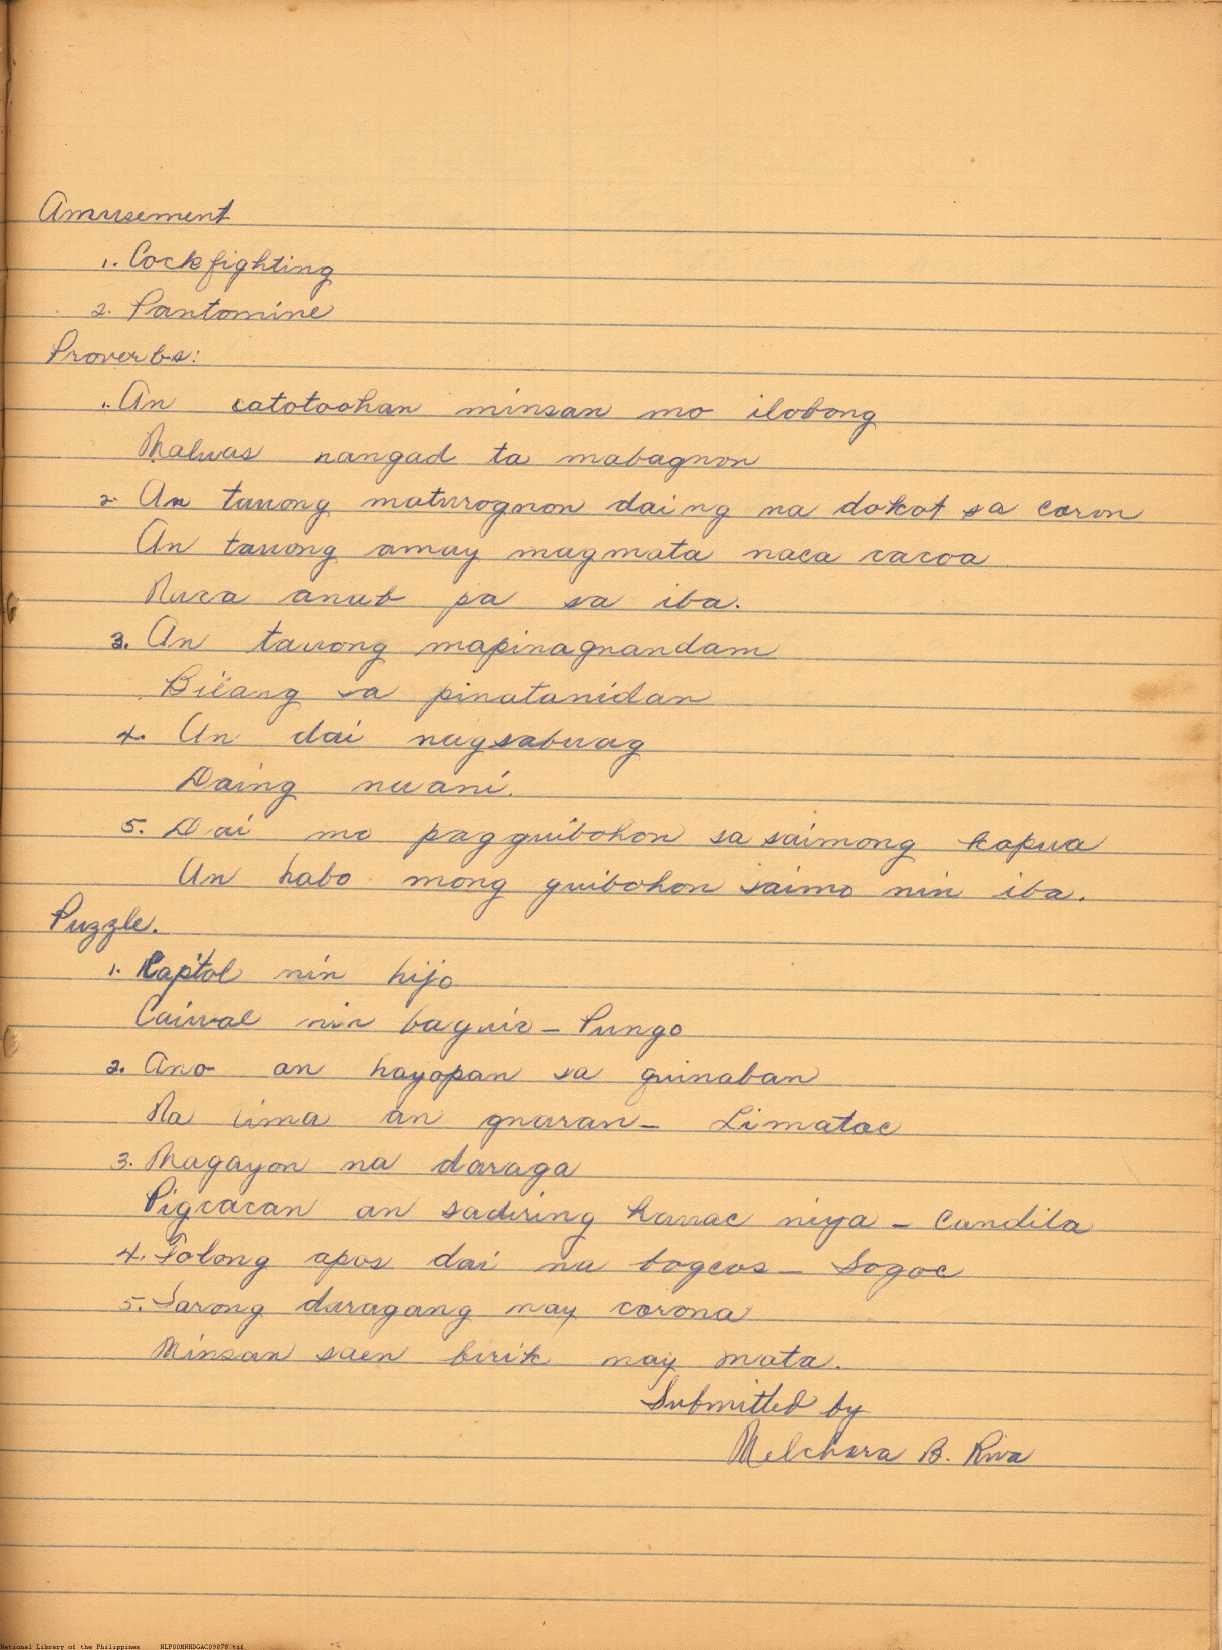 Amusement
1. Cockfighting
2. Pantomine
Proverbs:
1. An catotoohan minsan mo ilobong
Maluas nangad ta mabagnon
2. An tauong maturognon daing na dokot sa coron
An tauong amay magmata naca cacoa
Naca anub pa sa iba.
3. An tauong mapinagnandam
Bilang sa pinatanidan
4. An dai nagsabuag
Daing nu ani.
5. Dai mo pagguibohon sa saimong kapua
An habo mong guibohon saimo nin iba.
Puzzle.
1. Kaptol nin hijo
Caiwal nin baguis - Pungo
2. Ano an hayopan sa guinaban
Na lima an gnaran - Limatac
3. Magayon na daraga
Pigcacan an sadiring hauac niya - Candila
4. Tolong apos dai nu bogcos - Sogoc
5. Sarong daragang may corona
Minsan saen birik may mata.
Submitted by
Melchora B. Riva
National Library of the Philippines NLP00MHHDGAC09078.tif